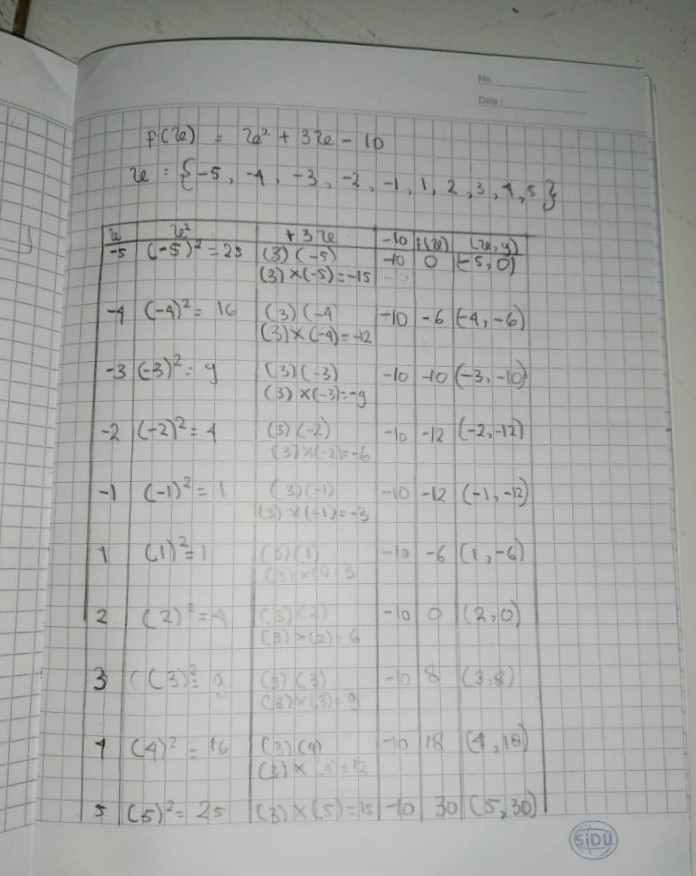 No.
Date :
f(x) = x² + 3x - 10
x = {-5, -4, -3, -2, -1, 1, 2, 3, 4, 5}
x x² +3x -10 f(x) (x,y)
-5 (-5)² = 25 (3)(-5) -10 0 (-5, 0)
(3)×(-5)=-15
-4 (-4)² = 16 (3)(-4 -10 -6 (-4, -6)
(3)×(-4)=-12
-3 (-3)² = 9 (3)(-3) -10 -10 (-3, -10)
(3)×(-3)=-9
-2 (-2)² = 4 (3)(-2) -10 -12 (-2, -12)
(3)×(-2)=-6
-1 (-1)² = 1 (3)(-1) -10 -12 (-1, -12)
(3)×(-1)=-3
1 (1)² = 1 (3)(1) -10 -6 (1, -6)
(3)×(1)=3
2 (2)² = 4 (3)(2) -10 0 (2, 0)
(3)×(2)=6
3 ((3)² = 9 (3)(3) -10 8 (3, 8)
(3)×(3)=9
4 (4)² = 16 (3)(4) -10 18 (4, 18)
(3)×(4)=12
5 (5)² = 25 (3)×(5)=15 -10 30 (5, 30)
SiDU